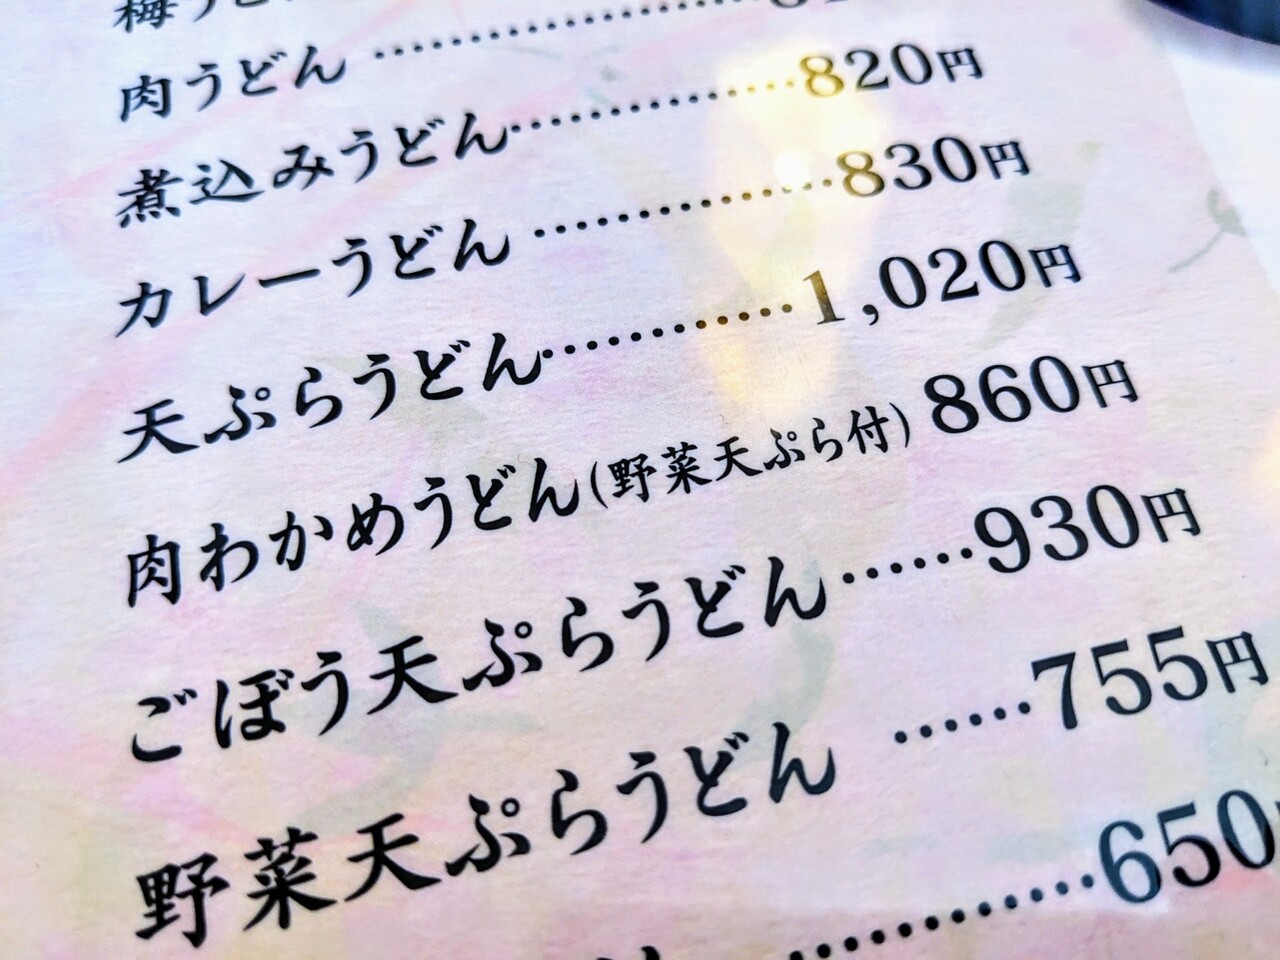 梅うど
肉うどん ……………
煮込みうどん…………820円
カレーうどん …………830円
天ぷらうどん…………1,020円
肉わかめうどん(野菜天ぷら付) 860円
ごぼう天ぷらうどん……930円
野菜天ぷらうどん ……755円
…………650